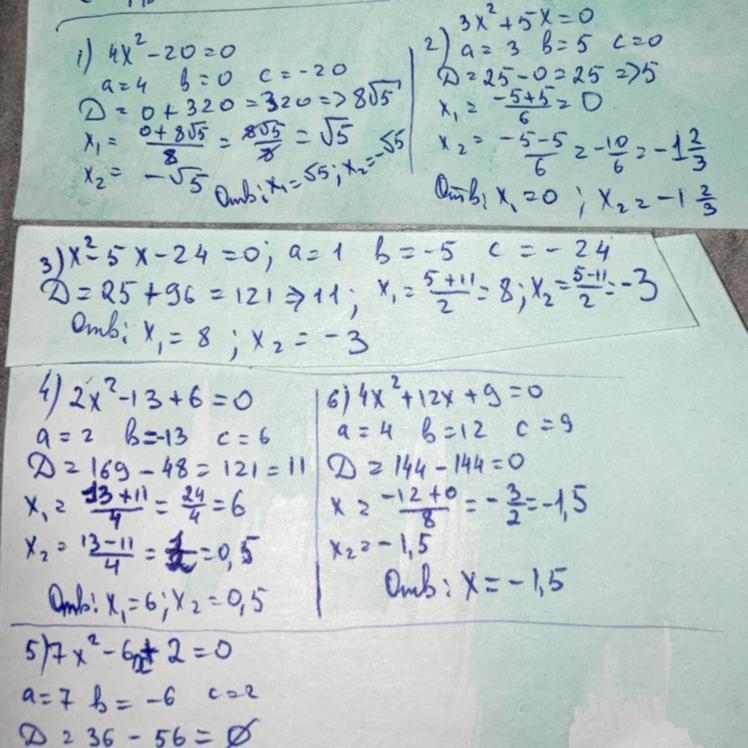 1) 4x²-20=0
a=4 b=0 c=-20
D=0+320=320=>8√5
x₁=(0+8√5)/8=8√5/8=√5
x₂=-√5 Отв: x₁=√5; x₂=-√5
2) 3x²+5x=0
a=3 b=5 c=0
D=25-0=25=>5
x₁=(-5+5)/6=0
x₂=(-5-5)/6=-10/6=-1 2/3
Отв: x₁=0; x₂=-1 2/3
3) x²-5x-24=0; a=1 b=-5 c=-24
D=25+96=121=>11; x₁=(5+11)/2=8; x₂=(5-11)/2=-3
Отв: x₁=8; x₂=-3
4) 2x²-13+6=0
a=2 b=-13 c=6
D=169-48=121=11
x₁=(13+11)/4=24/4=6
x₂=(13-11)/4=1/2=0,5
Отв: x₁=6; x₂=0,5
6) 4x²+12x+9=0
a=4 b=12 c=9
D=144-144=0
x=(-12+0)/8=-3/2=-1,5
x₂=-1,5
Отв: x=-1,5
5) 7x²-6x+2=0
a=7 b=-6 c=2
D=36-56=∅